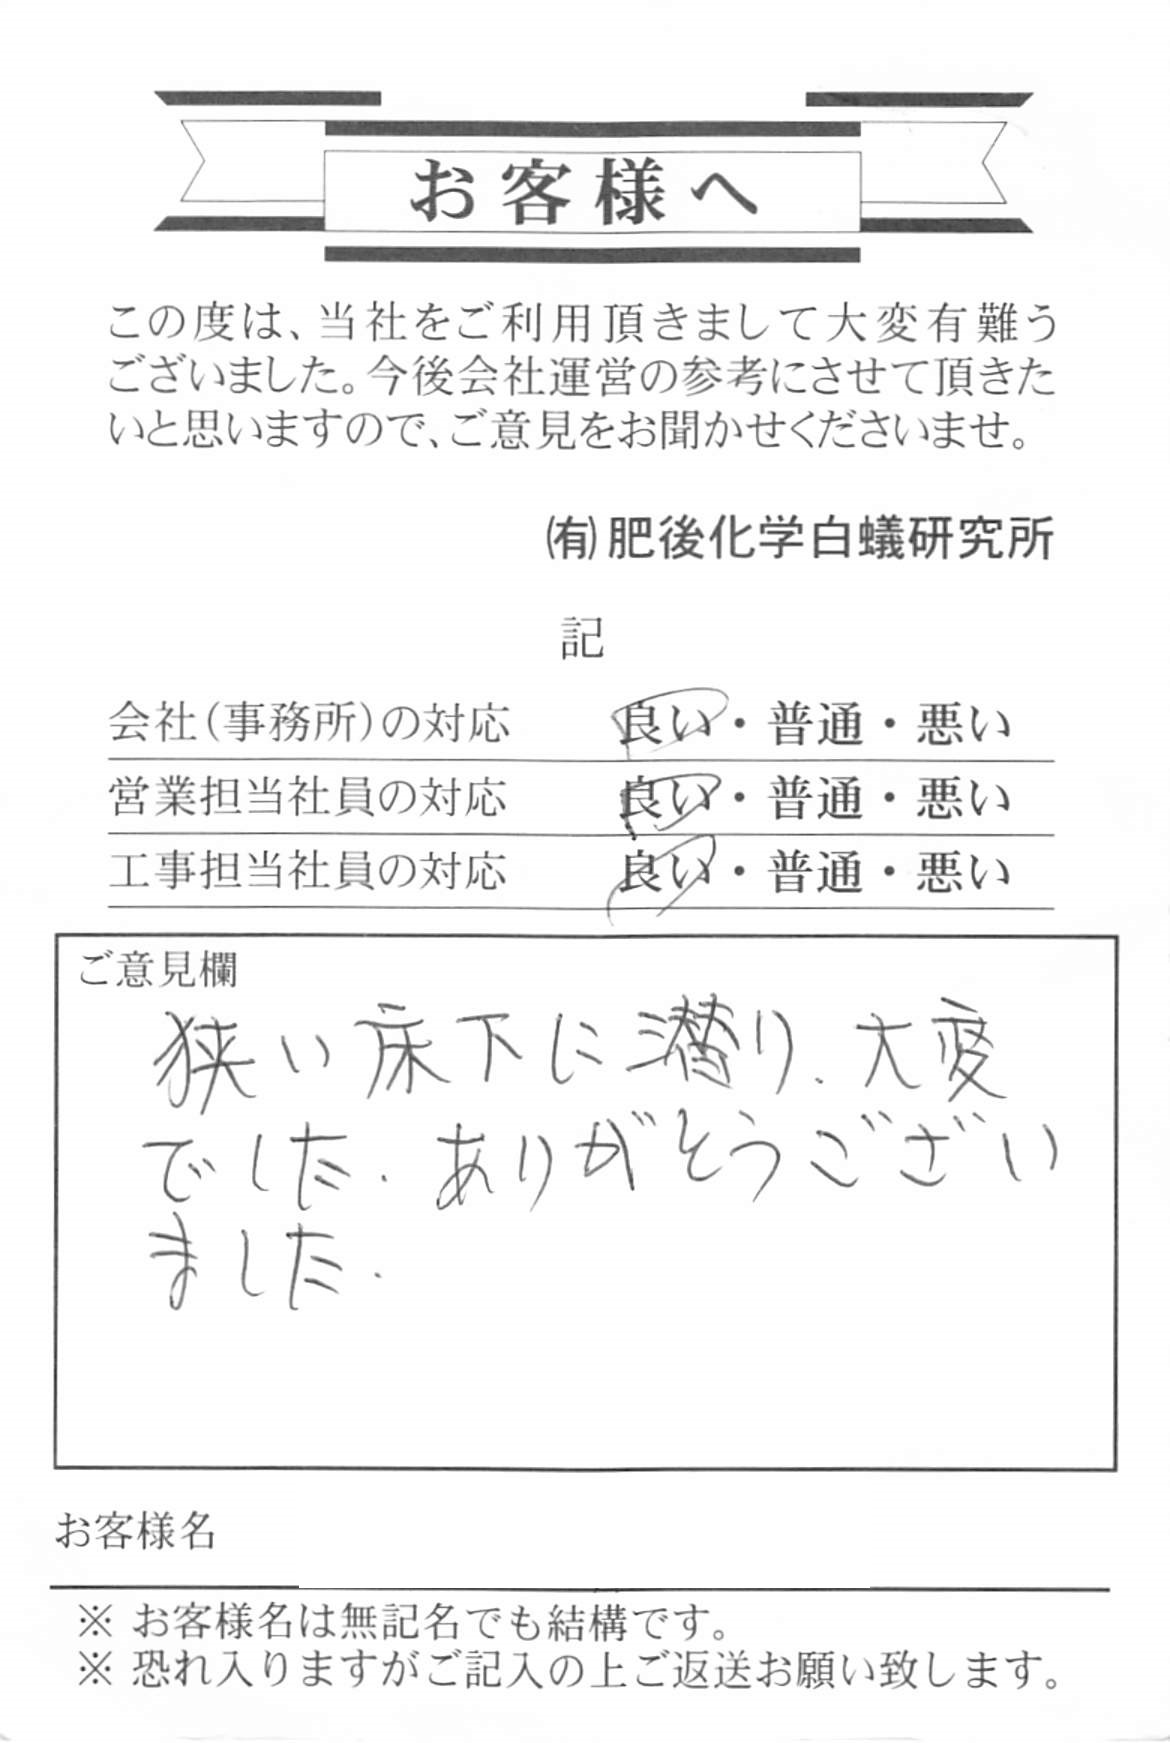 お客様へ
この度は、当社をご利用頂きまして大変有難う
ございました。今後会社運営の参考にさせて頂きた
いと思いますので、ご意見をお聞かせくださいませ。
㈲肥後化学白蟻研究所
記
会社(事務所)の対応 良い・普通・悪い
営業担当社員の対応 良い・普通・悪い
工事担当社員の対応 良い・普通・悪い
ご意見欄
狭い床下に潜り、大変
でした。ありがとうござい
ました。
お客様名
※ お客様名は無記名でも結構です。
※ 恐れ入りますがご記入の上ご返送お願い致します。